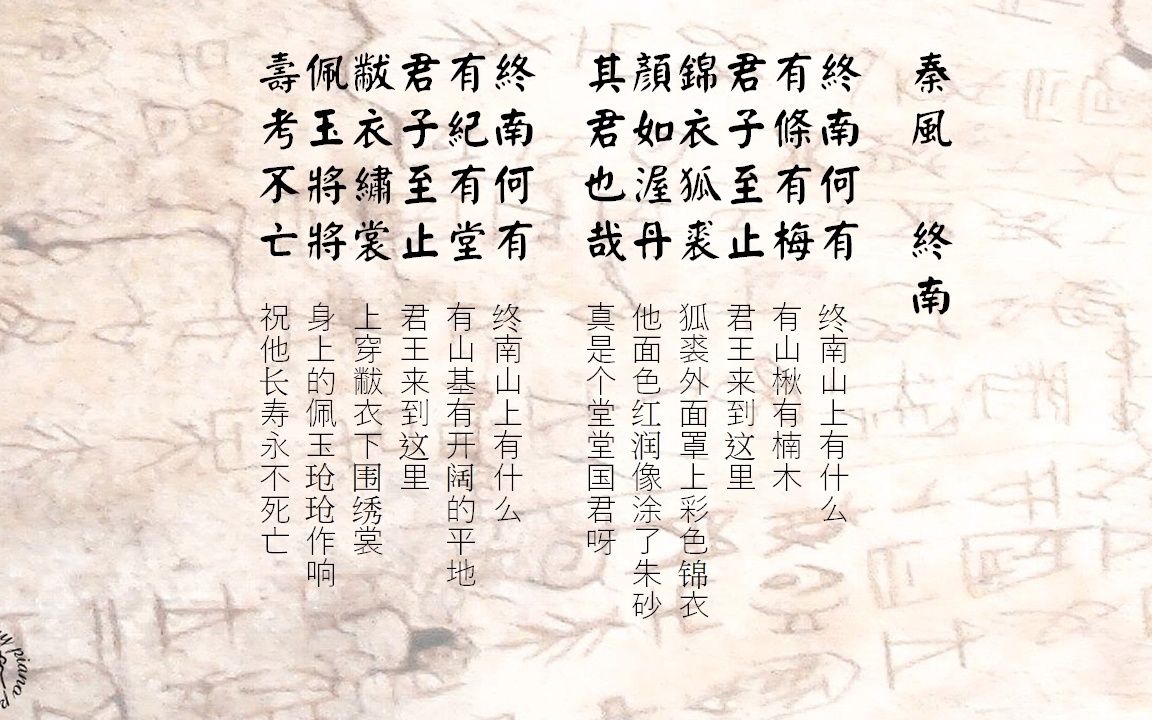 秦風 終南
終南何有
有條有梅
君子至止
錦衣狐裘
顏如渥丹
其君也哉
終南何有
有紀有堂
君子至止
黻衣繡裳
佩玉將將
壽考不亡
终南山上有什么
有山楸有楠木
君王来到这里
狐裘外面罩上彩色锦衣
他面色红润像涂了朱砂
真是个堂堂国君呀
终南山上有什么
有山基有开阔的平地
君王来到这里
上穿黻衣下围绣裳
身上的佩玉玱玱作响
祝他长寿永不死亡
piano